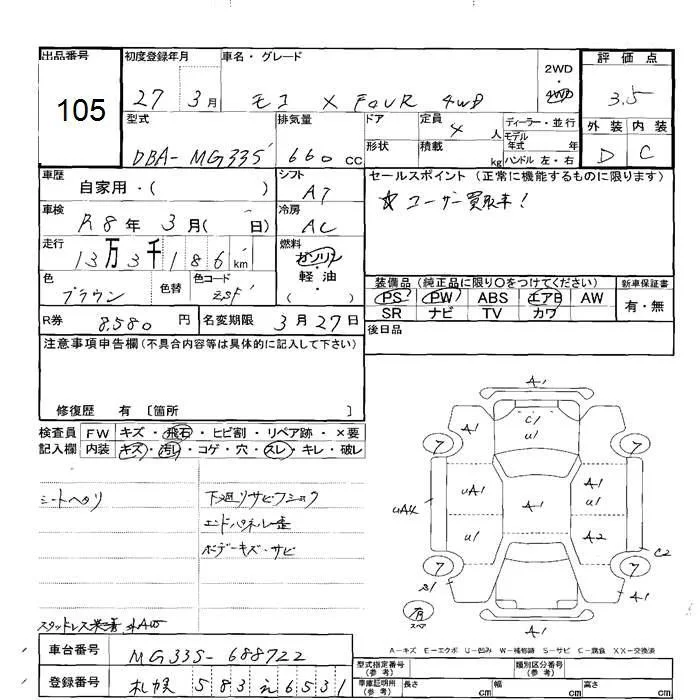 出品番号
105
初度登録年月
27 3月
車名・グレード
モコ X FOUR 4WD
2WD
・
4WD
評価点
3.5
型式
DBA-MG33S
排気量
660 CC
ドア
定員
4 人
形状
積載
kg
ディーラー・並行
モデル年式 年
ハンドル 左・右
外装 内装
D C
車歴
自家用・( )
シフト
AT
セールスポイント (正常に機能するものに限ります)
☆ ユーザー買取車!
車検
R8年 3月( 日)
冷房
AC
走行
13万3千186km
燃料
ガソリン
・
軽油
( )
色
ブラウン
色替
色コード
装備品 (純正品に限り○をつけてください)
PS PW ABS エアB AW
SR ナビ TV カワ
新車保証書
有・無
R券 8,580 円
名変期限 3月27日
後日品
注意事項申告欄(不具合内容等は具体的に記入して下さい)
修復歴 有 〔箇所 〕
検査員記入欄
FW キズ・飛石・ヒビ割・リペア跡・×要
内装 キズ・汚レ・コゲ・穴・スレ・キレ・破レ
シートヘタリ
下廻りサビフショク
エンドパネル歪
ボデーキズ・サビ
A1
A1
C1
U1
7
7
UA1
A1
U1
UA4
A1
U1
A2
C2
7
7
S1
A1
有
スペア
A1
A-キズ E-エクボ U-凹み W-補修跡 S-サビ C-腐食 XX-交換済
車台番号
MG33S-688722
登録番号
札幌 583 え 6531
型式指定番号
(参考)
類別区分番号
(参考)
車庫証明所
(参考)
長さ cm
幅 cm
高さ cm